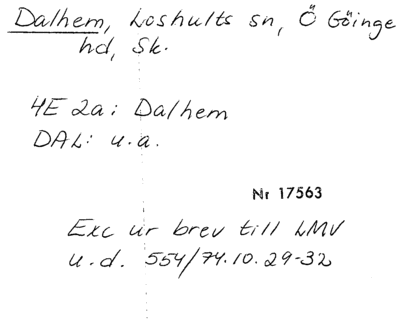 Dalhem, Loshults sn, Ö Göinge
hd, Sk.
4E 2a: Dalhem
DAL: u.a.
Nr 17563
Exc ur brev till LMV
u.d. 554/74.10.29-32